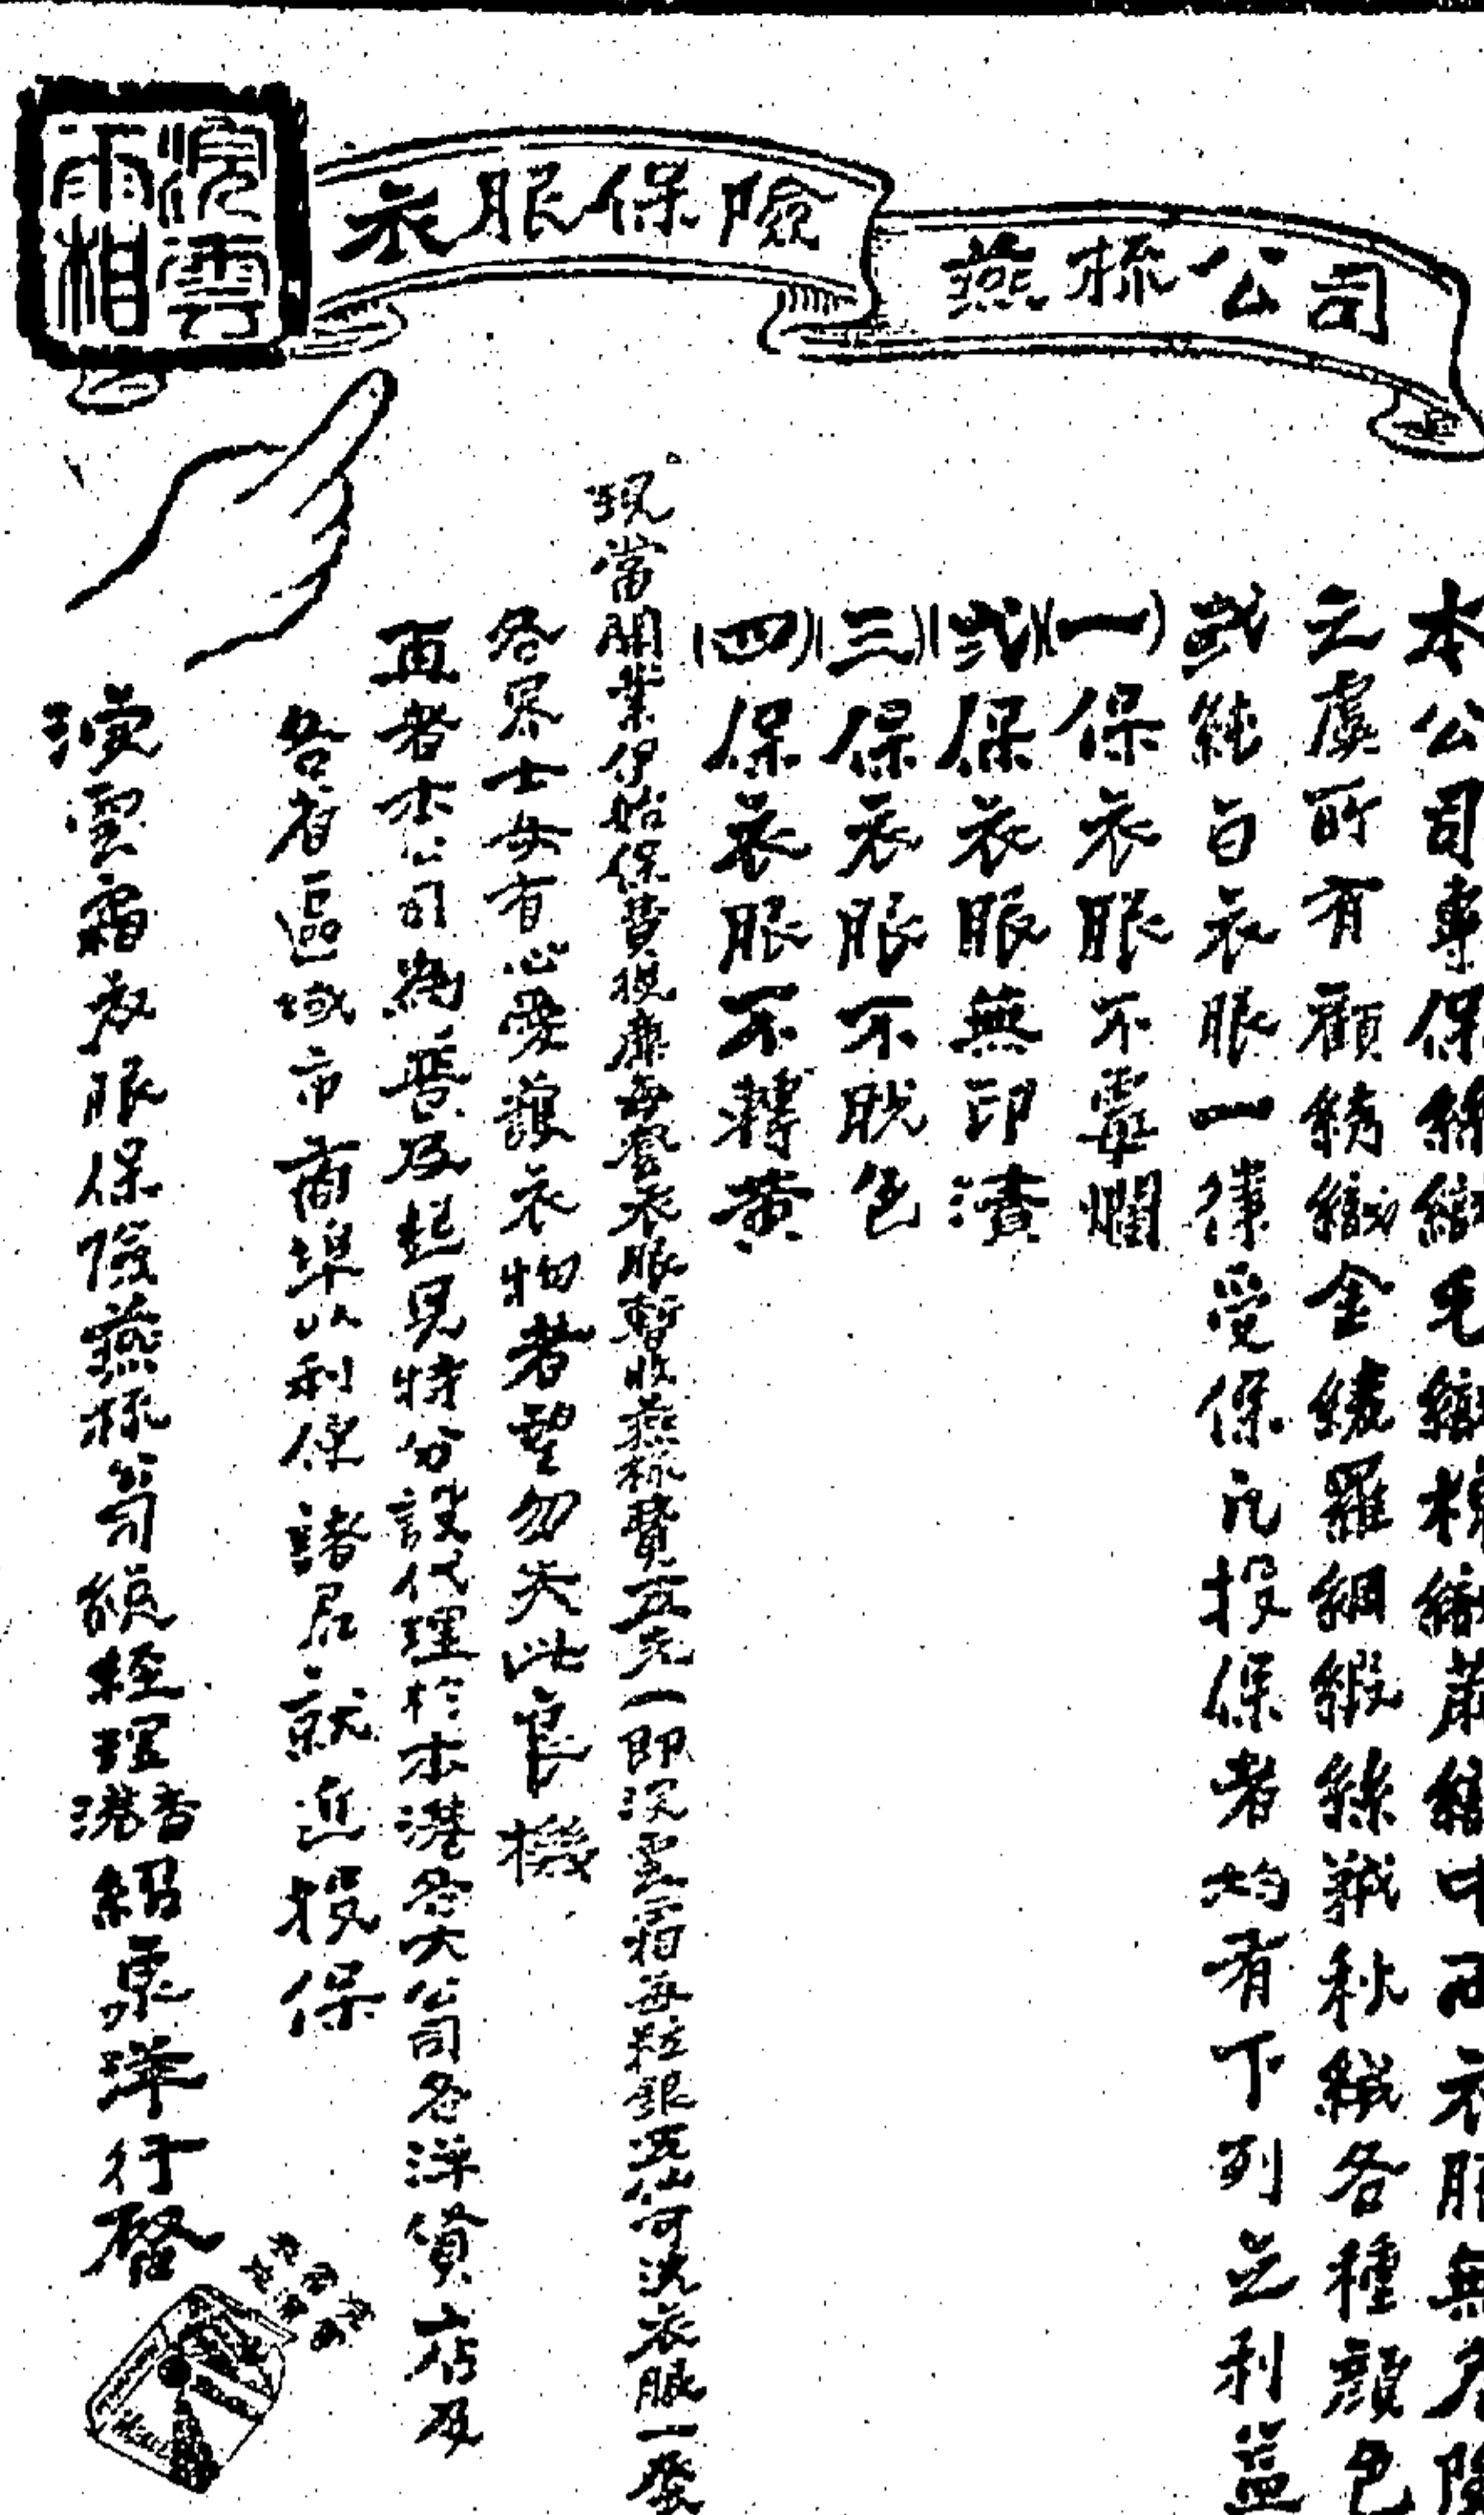 衣服保險
燕梳公司
本公司專保絲織毛織棉織蔴織中西衣服無危險
之虞所有顧綉織金綾羅綢緞絲絨秋絨各種顏色
或純白衣服一律受保凡投保者均有下列之利益
(一)保衣服不霉爛
(弍)保衣服無印漬
(三)保衣服不脫色
(四)保衣服不轉黃
現當開業伊始保費極廉每套衣服暫收燕梳費五元一即浣雲霜每粒銀五仙可洗衣服一套
各界士女有心愛護衣物者望勿失此良機
再者本公司為普及起見特分設代理於本港各大公司各洋貨店及
各省區域市商埠以利便諸君就近投保
浣雲霜衣服保險燕梳公司總經理香港紹東洋行啓